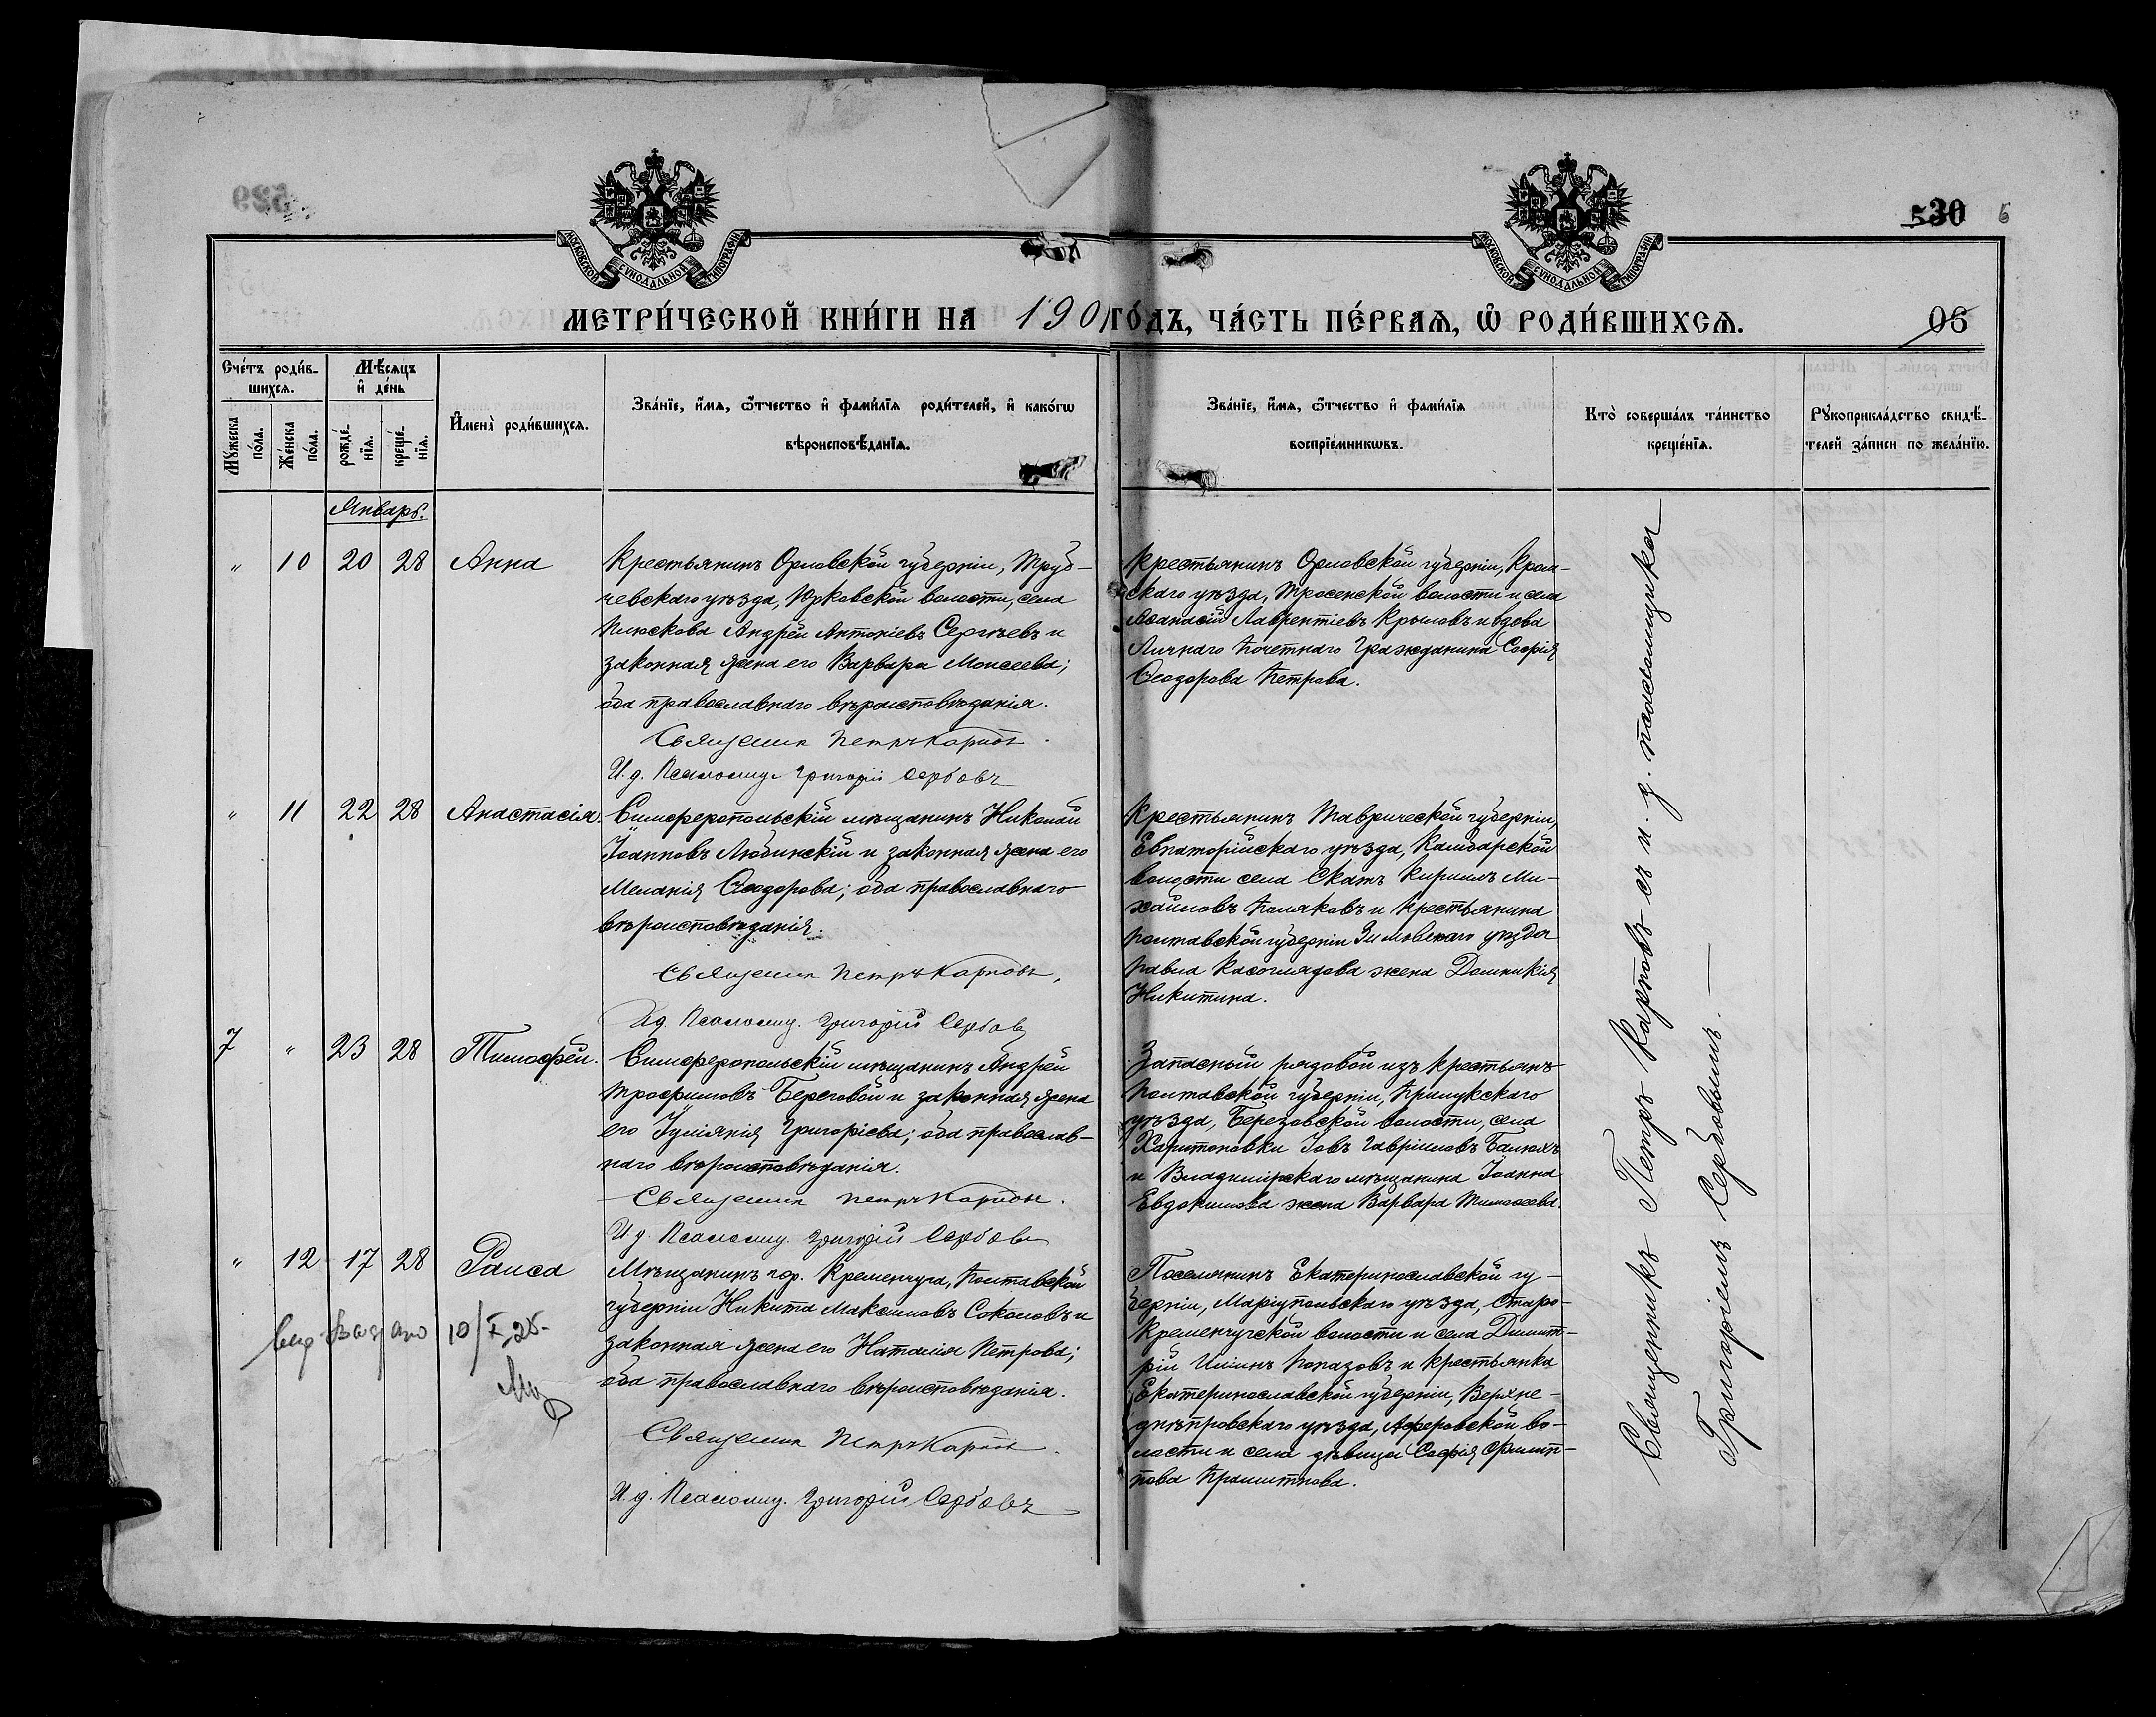 530 6
МОСКОВСКОЙ СУНОДАЛЬНОЙ ТИПОГРАФІИ
МОСКОВСКОЙ СУНОДАЛЬНОЙ ТИПОГРАФІИ
МЕТРИ́ЧЕСКОЙ КНИ́ГИ НА 190 ГО́ДЪ, ЧА́СТЬ ПЕ́РВАѦ, Ѡ҆ РОДИ́ВШИХСѦ.
06
Сче́тъ роди́в-
шихсѧ.
Мꙋ́жеска по́ла.
Же́нска по́ла.
Мѣ́сѧцъ
и҆ де́нь
рожде́-
нїѧ.
креще́-
нїѧ.
И҆мена̀ роди́вшихсѧ.
Зва́нїе, и҆́мѧ, ѻ҆́тчество и҆ фами́лїѧ роди́телей, и҆ како́гѡ
вѣроисповѣ́данїѧ.
Зва́нїе, и҆́мѧ, ѻ҆́тчество и҆ фами́лїѧ
воспрїе́мникѡвъ.
Кто̀ соверша́лъ та́инство
креще́нїѧ.
Рꙋкоприкла́дство свидѣ́-
телей за́писи по жела́нїю.
Январь.
" 10 20 28 Анна
Крестьянинъ Орловской губерніи, Труб-
чевскаго уѣзда, Юрковской волости, села
Плюскова Андрей Антоніевъ Сергѣевъ и
законная жена его Варвара Моисеева;
оба православнаго вѣроисповѣданія.
Священник Петръ Карповъ.
И. д. Псаломщ. Григорій Сербовъ
Крестьянинъ Орловской губерніи, Кром-
скаго уѣзда, Тросенской волости и села
Аѳанасій Лаврентіевъ Крыловъ и вдова
Личнаго Почетнаго Гражданина Софія
Ѳеодорова Петрова.
" 11 22 28 Анастасія.
Симферопольскій мѣщанинъ Николай
Іоанновъ Любинскій и законная жена его
Меланія Ѳеодорова; оба православнаго
вѣроисповѣданія.
Священник Петръ Карповъ.
И. д. Псаломщ. Григорій Сербовъ
Крестьянинъ Таврической губерніи,
Евпаторійскаго уѣзда, Камбарской
волости села Скатъ Кириллъ Ми-
хайловъ Поляковъ и крестьянина
Полтавской губерніи уѣзда
Павла Касоглядова жена Домникія
Никитина.
7 " 23 28 Тимофей.
Симферопольскій мѣщанинъ Андрей
Трофимовъ Береговой и законная жена
его Іуліанія Григоріева; оба православ-
наго вѣроисповѣданія.
Священник Петръ Карповъ.
И. д. Псаломщ. Григорій Сербовъ
Запасный рядовой изъ крестьянъ
Полтавской губерніи, Прилукскаго
уѣзда, Березовской волости, села
Харитоновки Іовъ Гавріиловъ
и Владимірскаго мѣщанина Іоанна
Евдокимова жена Варвара Тимоѳеева.
" 12 17 28 Раиса
Мѣщанинъ гор. Кременчуга, Полтавской
губерніи Никита Максимовъ Соколовъ и
законная жена его Наталія Петрова;
оба православнаго вѣроисповѣданія.
Священник Петръ Карповъ.
И. д. Псаломщ. Григорій Сербовъ
10/X 25.
Поселянинъ Екатеринославской гу-
берніи, Маріупольскаго уѣзда, Старо-
Кременчугской волости и села Димит-
рій Ильинъ Попазовъ и крестьянка
Екатеринославской губерніи, Верхне-
днѣпровскаго уѣзда, Аферовской во-
лости и села дѣвица Софія Филип-
пова
Священникъ Петръ Карповъ съ и. д. псаломщика
Григоріемъ Сербовымъ.